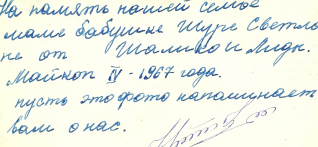 На память нашей семье
маме бабушке Шуре Светла
не от Шалико и Лидн.
Майкоп IV - 1967 года.
пусть это фото напоминает
вам о нас.